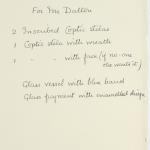 For Mr Dalton
2 Inscribed Coptic stelas
1 Coptic stela with wreath
1 " " with face (if no-one
else wants it)
Glass vessel with blue band
Glass fragment with enamelled design